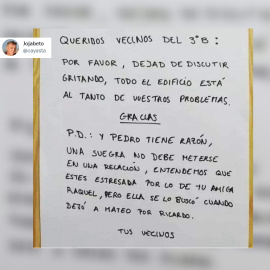 Jojabeto
QUERIDOS VECINOS DEL 3ºB:
POR FAVOR, DEJAD DE DISCUTIR
GRITANDO, TODO EL EDIFICIO ESTÁ
AL TANTO DE VUESTROS PROBLEMAS.
GRACIAS
P.D.: Y PEDRO TIENE RAZÓN,
UNA SUEGRA NO DEBE METERSE
EN UNA RELACIÓN, ENTENDEMOS QUE
ESTES ESTRESADA POR LO DE TU AMIGA
RAQUEL, PERO ELLA SE LO BUSCÓ CUANDO
DEJÓ A MATEO POR RICARDO.
TUS VECINOS